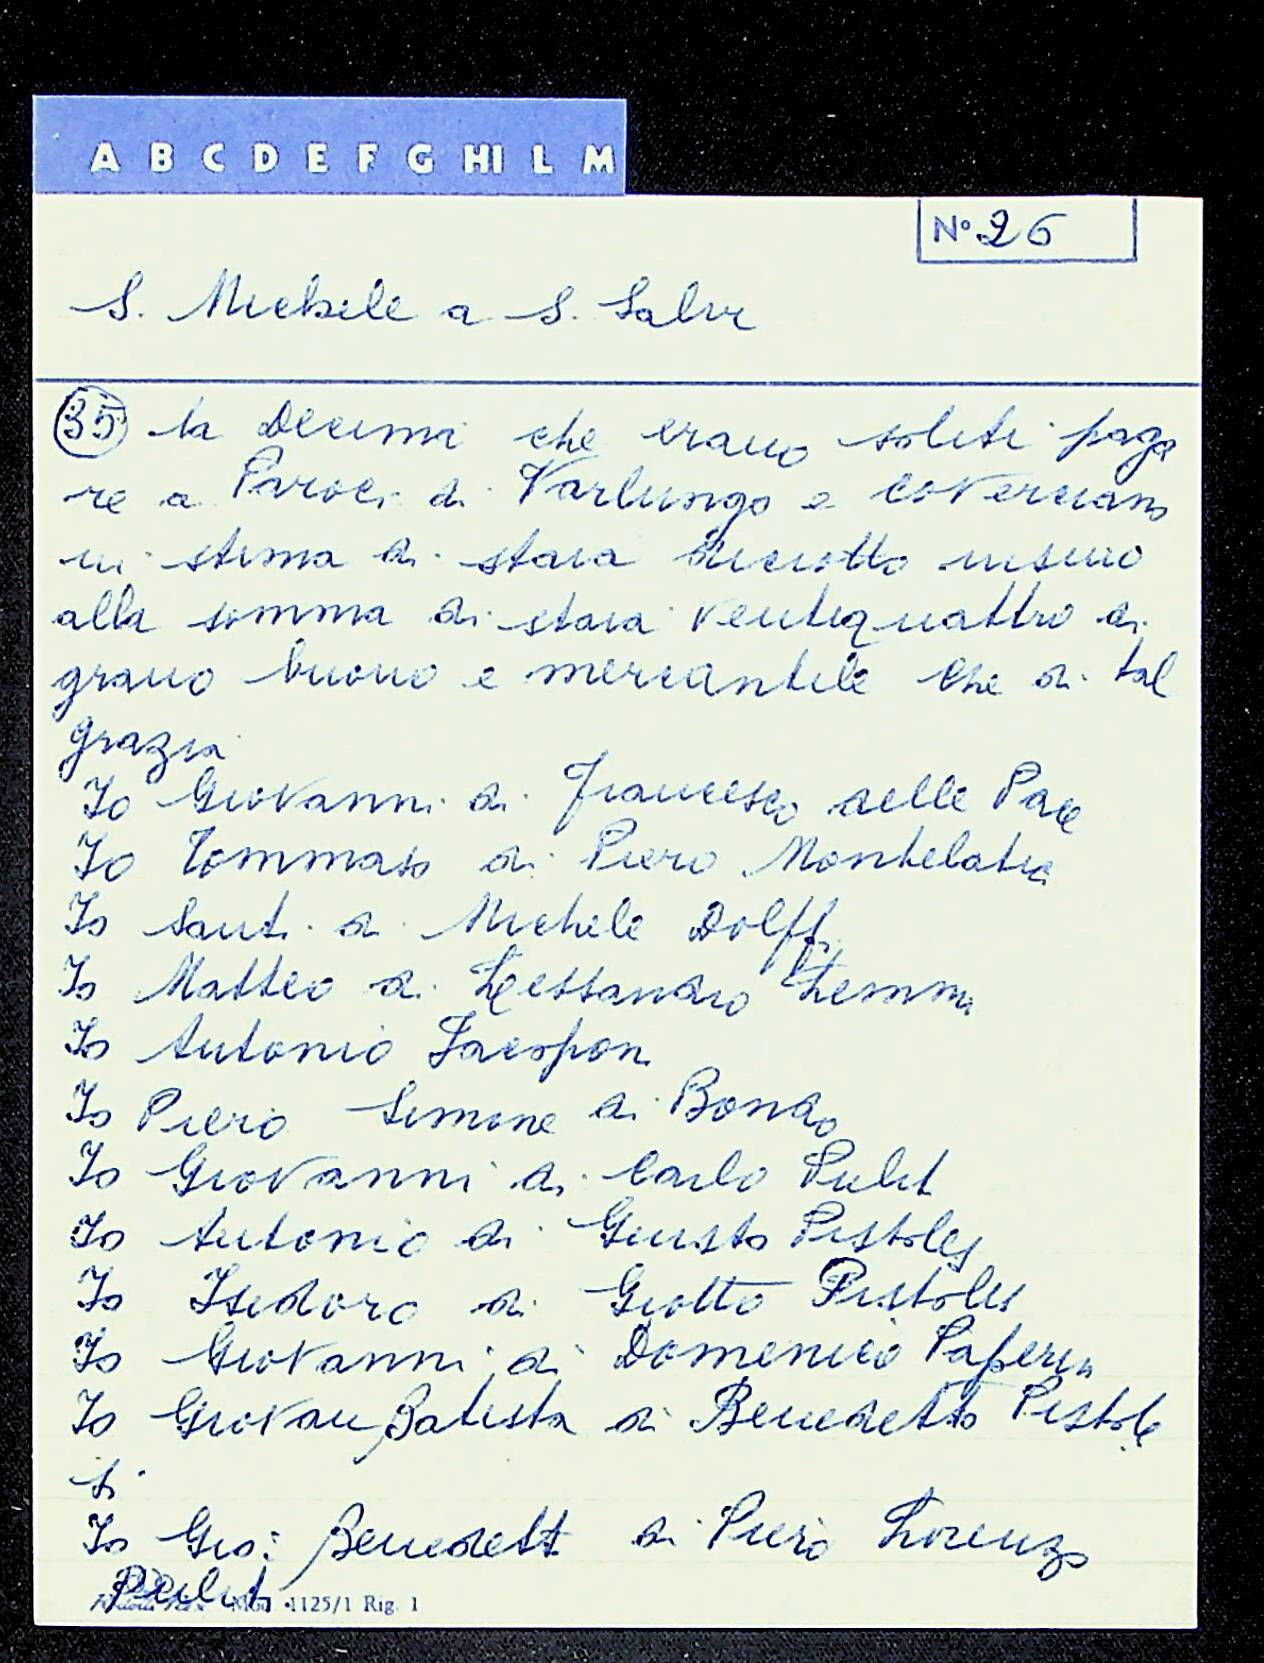 A B C D E F G HI L M
N° 26
S. Michele a S. Salvi
35 la Decima che erano soliti paga
re a Paroci di Varlungo e Coverciano
in stima di staia diciotto insino
alla somma di staia ventiquattro di
grano buono e mercantile che di tal
grazia
Io Giovanni di Francesco delle Pace
Io Tommaso di Piero Montelatici
Io Santi di Michele Dolffi
Io Matteo di Lessandro Lemmi
Io Antonio
Io Piero Simone di Bondo
Io Giovanni di Carlo Puliti
Io Antonio di Giusto Pistolesi
Io Isidoro di Giotto Pistolesi
Io Giovanni di Domenico Paperini
Io Giovan Batista di Benedetto Pistole
si
Io Gio: Benedett di Piero Lorenzo
Puliti
1125/1 Rig. 1